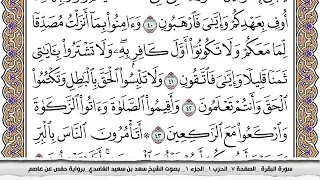 أُوفِ بِعَهْدِكُمْ وَإِيَّٰىَ فَٱرْهَبُونِ ٤٠ وَءَامِنُوا۟ بِمَآ أَنزَلْتُ مُصَدِّقًا
لِّمَا مَعَكُمْ وَلَا تَكُونُوٓا۟ أَوَّلَ كَافِرٍۭ بِهِۦ ۖ وَلَا تَشْتَرُوا۟ بِـَٔايَٰتِى
ثَمَنًا قَلِيلًا وَإِيَّٰىَ فَٱتَّقُونِ ٤١ وَلَا تَلْبِسُوا۟ ٱلْحَقَّ بِٱلْبَٰطِلِ وَتَكْتُمُوا۟
ٱلْحَقَّ وَأَنتُمْ تَعْلَمُونَ ٤٢ وَأَقِيمُوا۟ ٱلصَّلَوٰةَ وَءَاتُوا۟ ٱلزَّكَوٰةَ
وَٱرْكَعُوا۟ مَعَ ٱلرَّٰكِعِينَ ٤٣ ۞ أَتَأْمُرُونَ ٱلنَّاسَ بِٱلْبِرِّ
سورة البقرة . الصفحة ٧ . الحزب ١ . الجزء ١ . بصوت الشيخ سعد بن سعيد الغامدي . برواية حفص عن عاصم